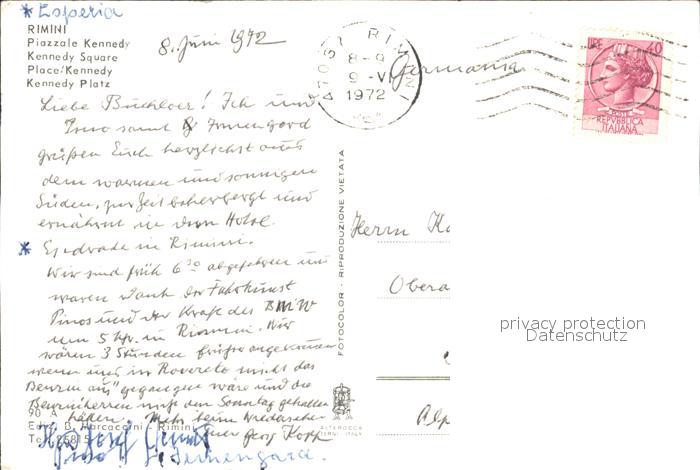 * Esperia
RIMINI
Piazzale Kennedy
Kennedy Square
Place Kennedy
Kennedy Platz
8. Juni 1972
RIMINI
8-9
9-VI
1972
Germania
LIRE 40
POSTE
REPUBBLICA
ITALIANA
Liebe Buchloer! Ich und
Irmengard
grüßen Euch herzlichst aus
dem warmen und sonnigen
Süden, zur Zeit beherbergt und
ernährt in dem Hotel
* Esedrade in Rimini.
Wir sind früh 6 30 abgefahren und
waren dank der Fahrkunst
Pinos und der Kraft des BMW
um 5 Uhr in Rimini. Wir
wären 3 Stunden früher angekommen
wenn uns in Rovereto nicht das
Benzin aus" gegangen wäre und die
Benzinherren nicht den Sonntag gehalten
hätten. Mehr beim Wiedersehen
Euer Georg Kopp
Irmengard.
90 A
Ediz. B. Marcaccini - Rimini
Tel. 25815
FOTOCOLOR - RIPRODUZIONE VIETATA
ALTEROCCA
TERNI ITALY
Herrn
Obera
Alp
privacy protection
Datenschutz